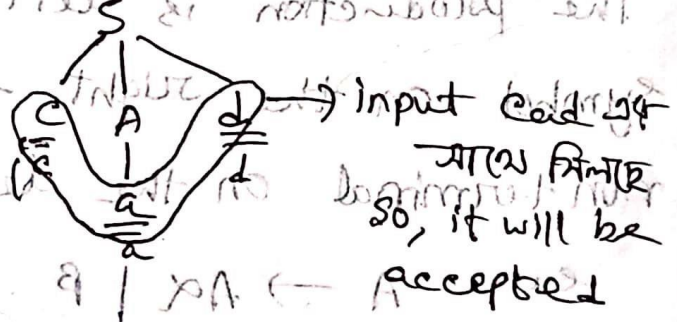 S
c A d → input cad এর
c a d সাথে মিলছে
a so, it will be
accepted